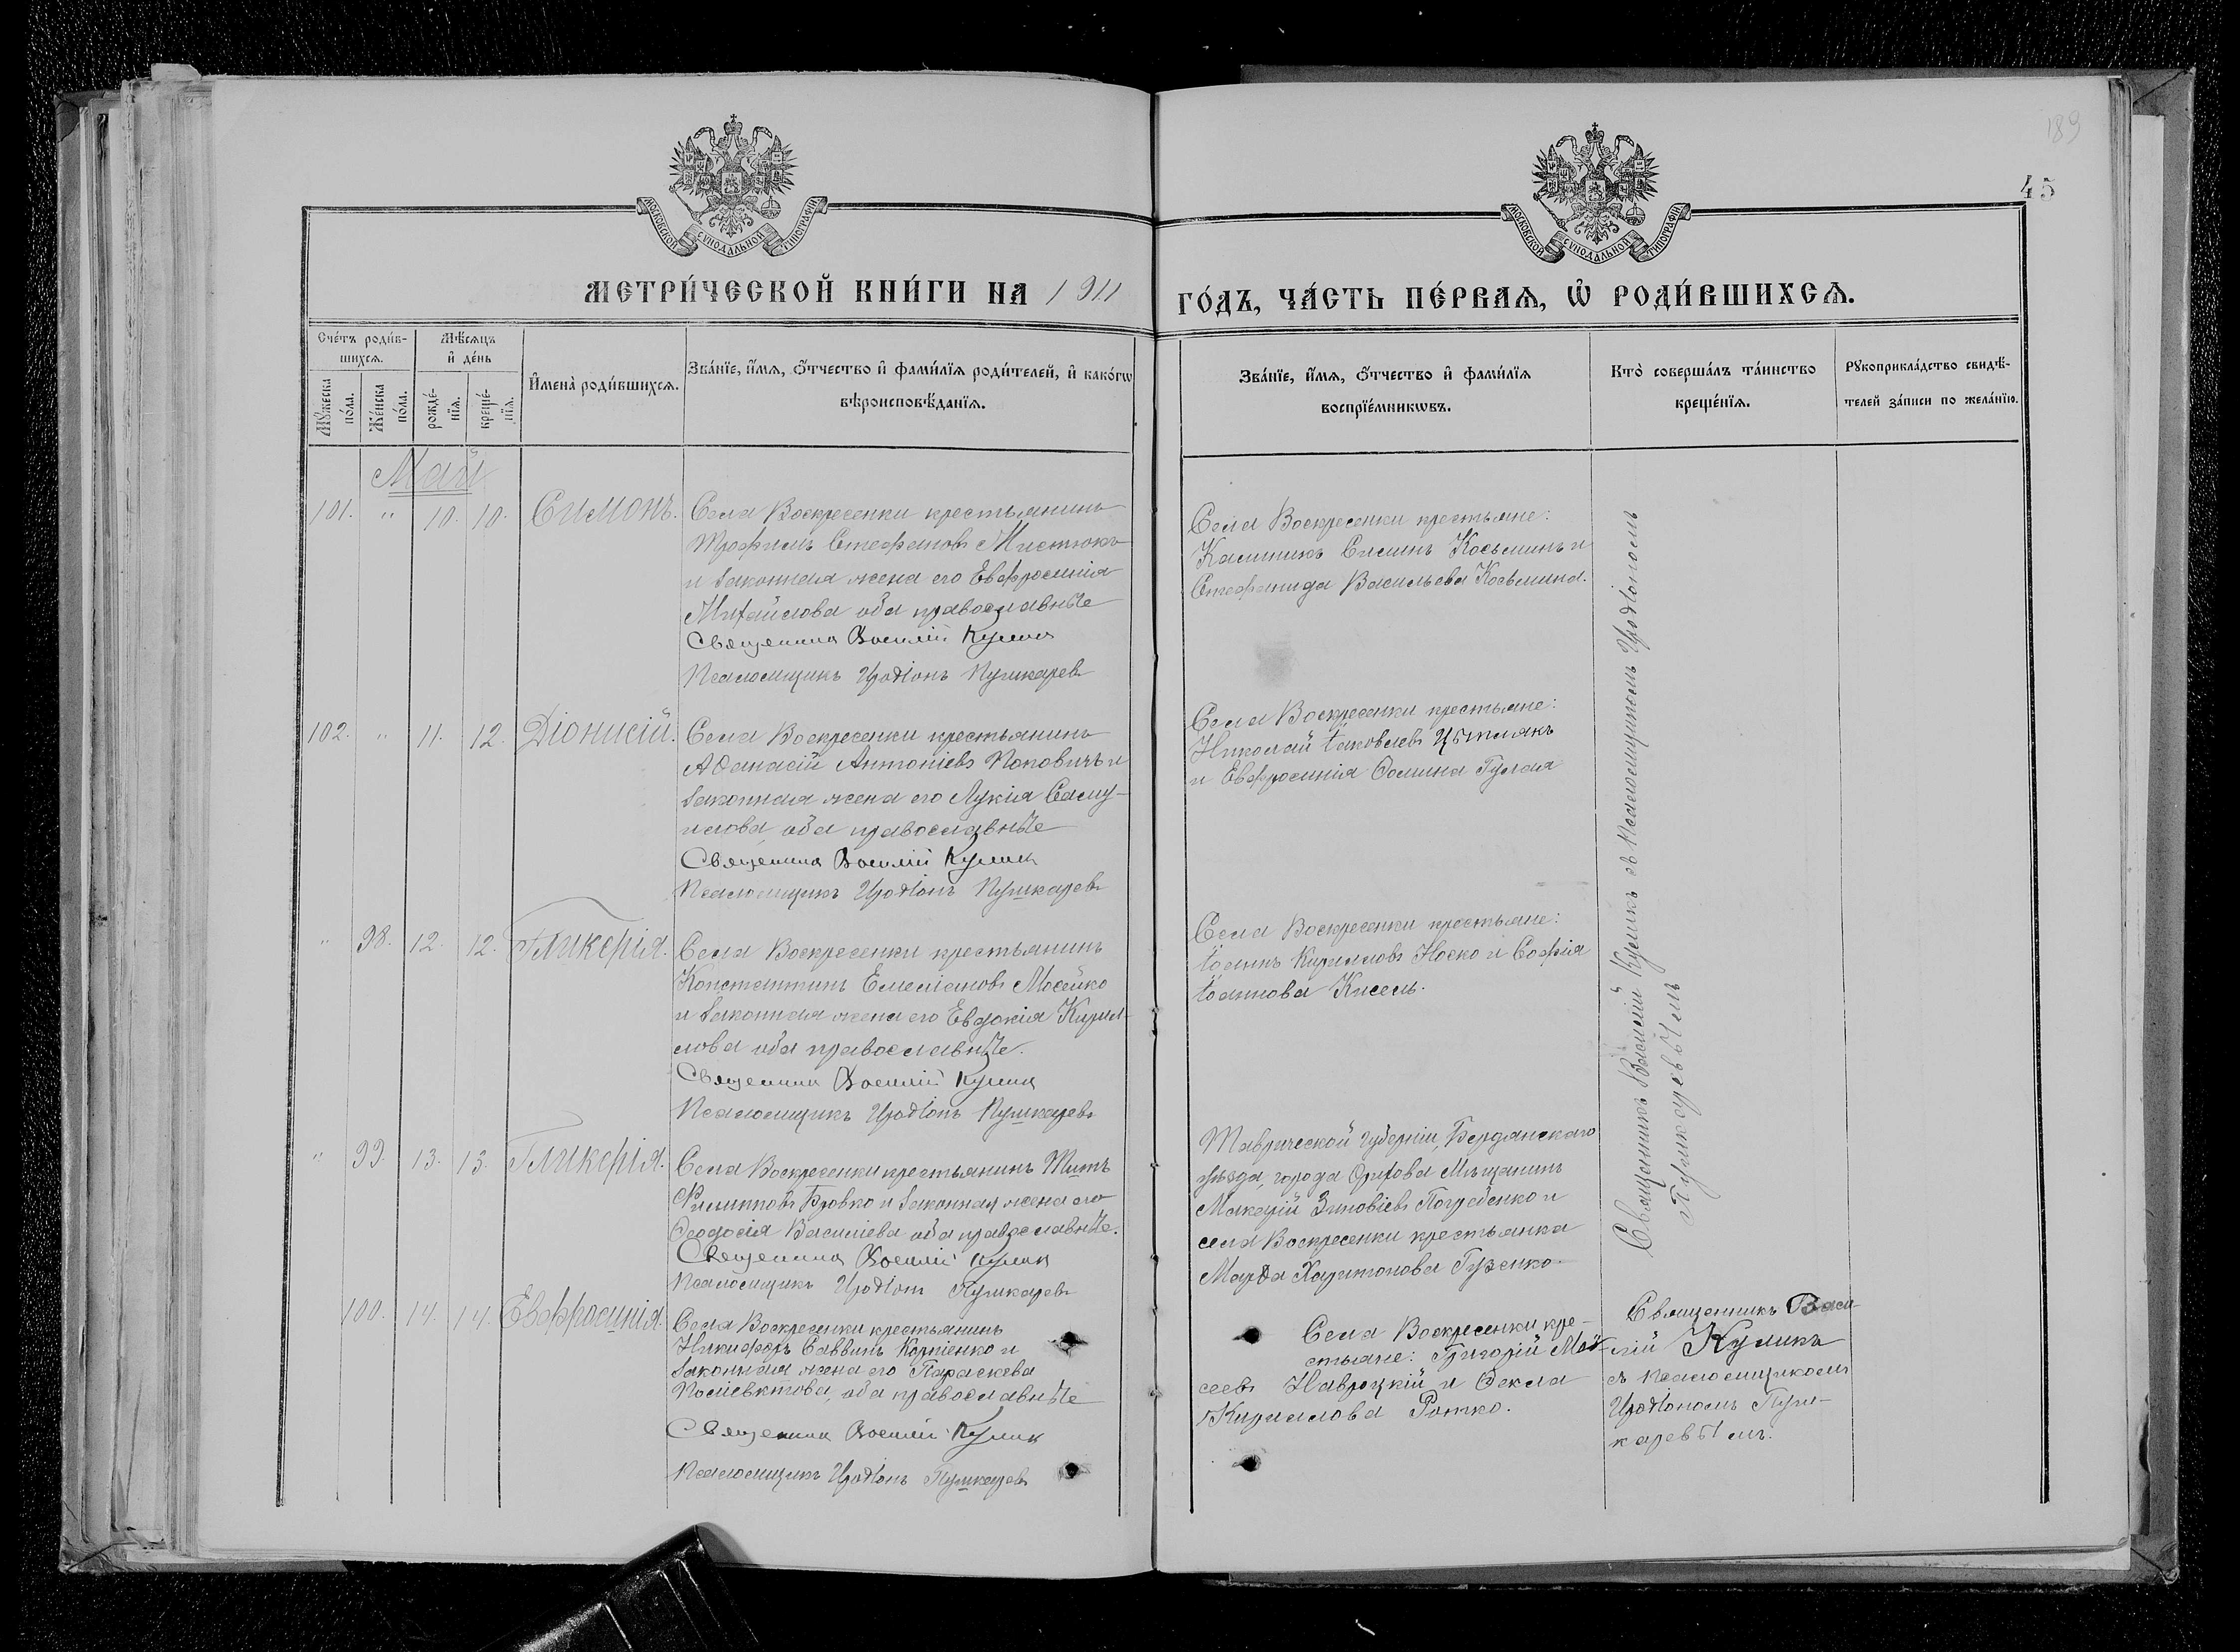 189
45
МОСКОВСКОЙ СѴНОДАЛЬНОЙ ТИПОГРАФІИ
МОСКОВСКОЙ СѴНОДАЛЬНОЙ ТИПОГРАФІИ
МЕТРИ́ЧЕСКОЙ КНИ́ГИ НА 1911
ГО́ДЪ, ЧА́СТЬ ПЕ́РВАѦ, Ѽ РОДИ́ВШИХСѦ.
Сче́тъ роди́в-
шихсѧ.
Мꙋ́жеска по́ла.
Же́нска по́ла.
Мѣ́сѧцъ
и҆ де́нь
рожде́-
нїѧ.
креще́-
нїѧ.
И҆мена̀ роди́вшихсѧ.
Зва́нїе, и҆́мѧ, ѻ҆́тчество и҆ фами́лїѧ роди́телей, и҆ како́гѡ
вѣроисповѣ́данїѧ.
Зва́нїе, и҆́мѧ, ѻ҆́тчество и҆ фами́лїѧ
воспрїе́мникѡвъ.
Кто̀ соверша́лъ та́инство
креще́нїѧ.
Рꙋкоприкла́дство свидѣ́-
телей за́писи по жела́нїю.
Май
101. " 10. 10. Симонъ.
Села Воскресенки крестьянинъ
Трофимъ Стефановъ Мистюкъ
и законная жена его Евфросинія
Михайлова оба православные
Священникъ Василій Куликъ
Псаломщикъ Иродіонъ Пушкаревъ
Села Воскресенки крестьяне:
Калиникъ Силинъ Косьминъ и
Стефанида Васильева Косьмина.
102. " 11. 12. Діонисій.
Села Воскресенки крестьянинъ
Аѳанасій Антоніевъ Поповичъ и
законная жена его Лукія Саму-
илова оба православные
Священникъ Василій Куликъ
Псаломщикъ Иродіонъ Пушкаревъ
Села Воскресенки крестьяне:
Николай Іаковлевъ
и Евфросинія Ѳомина Гулая
" 98. 12. 12. Гликерія.
Села Воскресенки крестьянинъ
Константинъ Емеліановъ Мосейко
и законная жена его Евдокія Кирил-
лова оба православные.
Священникъ Василій Куликъ
Псаломщикъ Иродіонъ Пушкаревъ
Села Воскресенки крестьяне:
Іоаннъ Кирилловъ Носко и Софія
Іоаннова Кисель.
" 99. 13. 13. Гликерія.
Села Воскресенки крестьянинъ Титъ
Филиповъ Бровко и законная жена его
Ѳеодосія Василіева оба православные.
Священникъ Василій Куликъ
Псаломщикъ Иродіонъ Пушкаревъ
Таврической губерніи, Бердянскаго
уѣзда, города Орѣхова мѣщанинъ
Макарій Зиновіевъ Погребенко и
села Воскресенки крестьянка
Марѳа Харитонова Гузенко.
Священникъ Василій Куликъ съ псаломщикомъ Иродіономъ
Пушкаревымъ
100. 14. 14. Евфросинія.
Села Воскресенки крестьянинъ
Никифоръ Саввинъ Корніенко и
законная жена его Параскева
Поліевктова, оба православные
Священникъ Василій Куликъ
Псаломщикъ Иродіонъ Пушкаревъ
Села Воскресенки кре-
стьяне: Григорій Мой-
сеевъ Навроцкій и Ѳекла
Кириллова Ротко.
Священникъ Васи-
лій Куликъ
съ псаломщикомъ
Иродіономъ Пуш-
каревымъ.